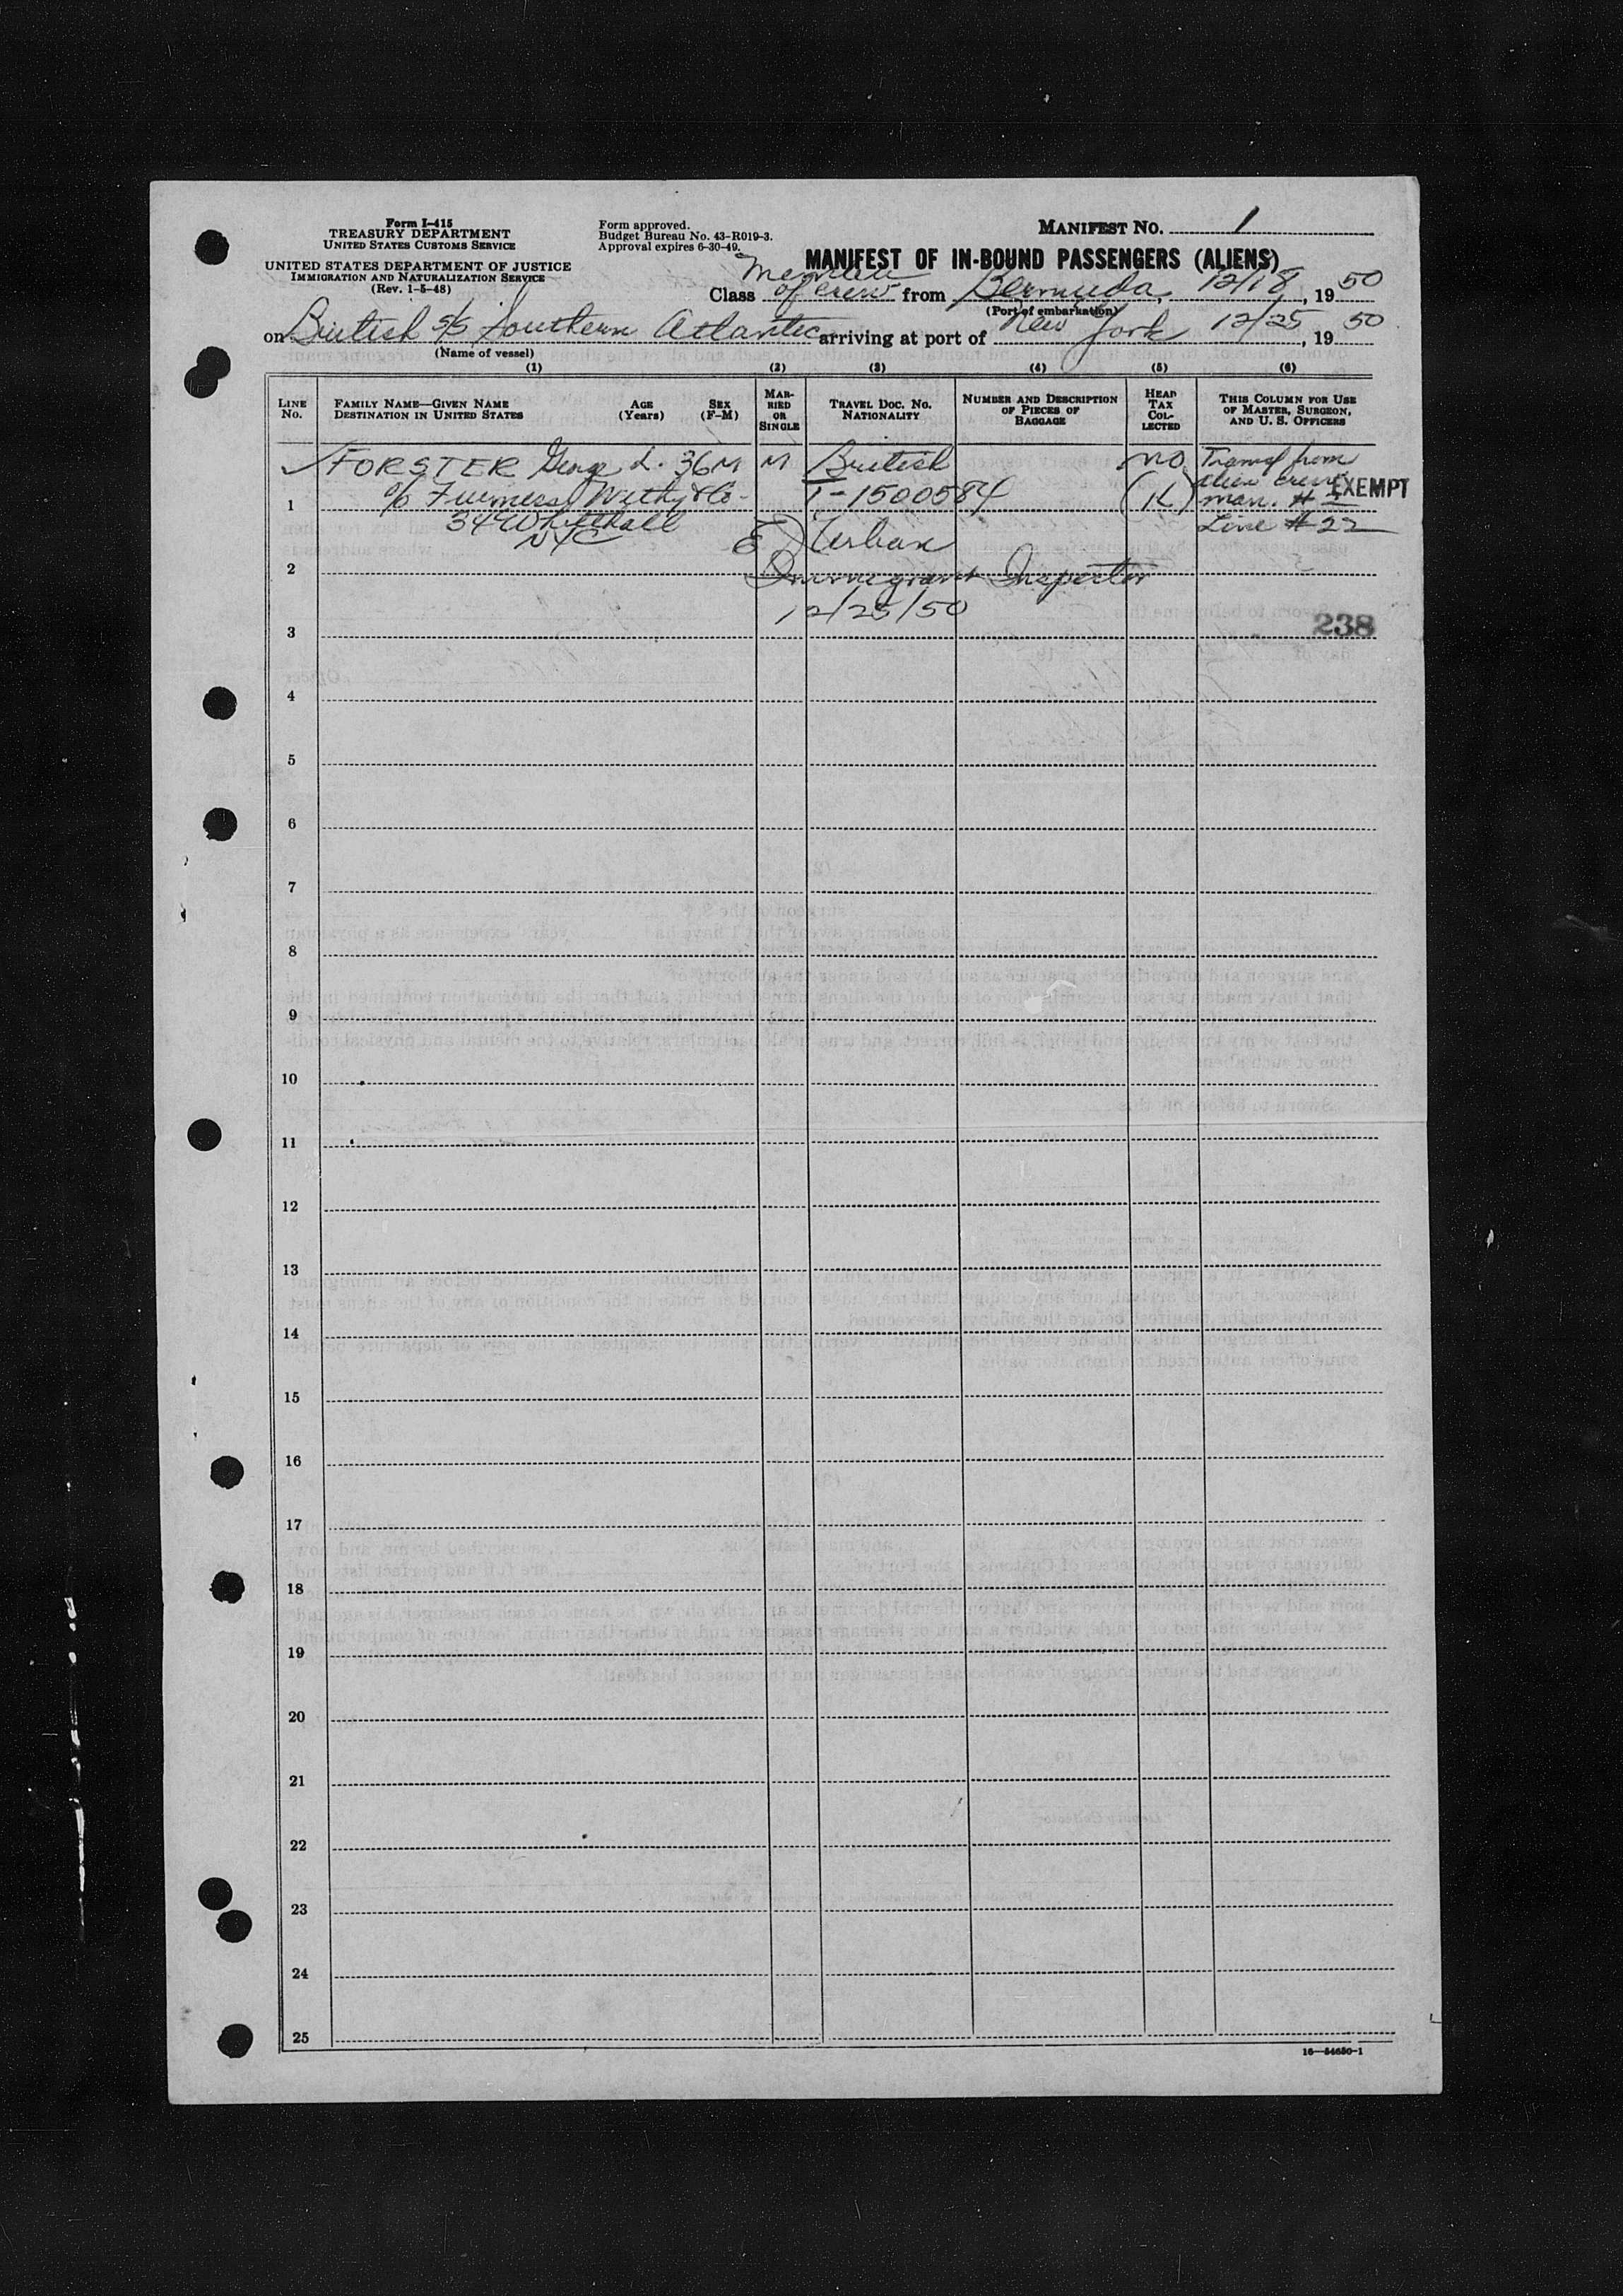 Form I-415
TREASURY DEPARTMENT
UNITED STATES CUSTOMS SERVICE
UNITED STATES DEPARTMENT OF JUSTICE
IMMIGRATION AND NATURALIZATION SERVICE
(Rev. 1-5-48)
Form approved.
Budget Bureau No. 43-R019-3.
Approval expires 6-30-49.
MANIFEST NO. 1
MANIFEST OF IN-BOUND PASSENGERS (ALIENS)
Class Member of crew from Bermuda, 12/18, 1950
(Port of embarkation)
on British S/S Southern Atlantic arriving at port of New York 12/25, 1950
(Name of vessel)
(1) (2) (3) (4) (5) (6)
LINE NO.
FAMILY NAME—GIVEN NAME
DESTINATION IN UNITED STATES
AGE (Years)
SEX (F-M)
MARRIED OR SINGLE
TRAVEL DOC. NO.
NATIONALITY
NUMBER AND DESCRIPTION OF PIECES OF BAGGAGE
HEAD TAX COLLECTED
THIS COLUMN FOR USE OF MASTER, SURGEON, AND U. S. OFFICERS
FORSTER George L. 36 M M British no Transf from
c/o Furness Withy & Co. T-1500584 (K) alien crew
1 man. # EXEMPT
34 Whitehall Line #22
NYC
E Urban
2 Immigrant Inspector
12/25/50
3 238
4
5
6
7
8
9
10
11
12
13
14
15
16
17
18
19
20
21
22
23
24
25
16—54650-1